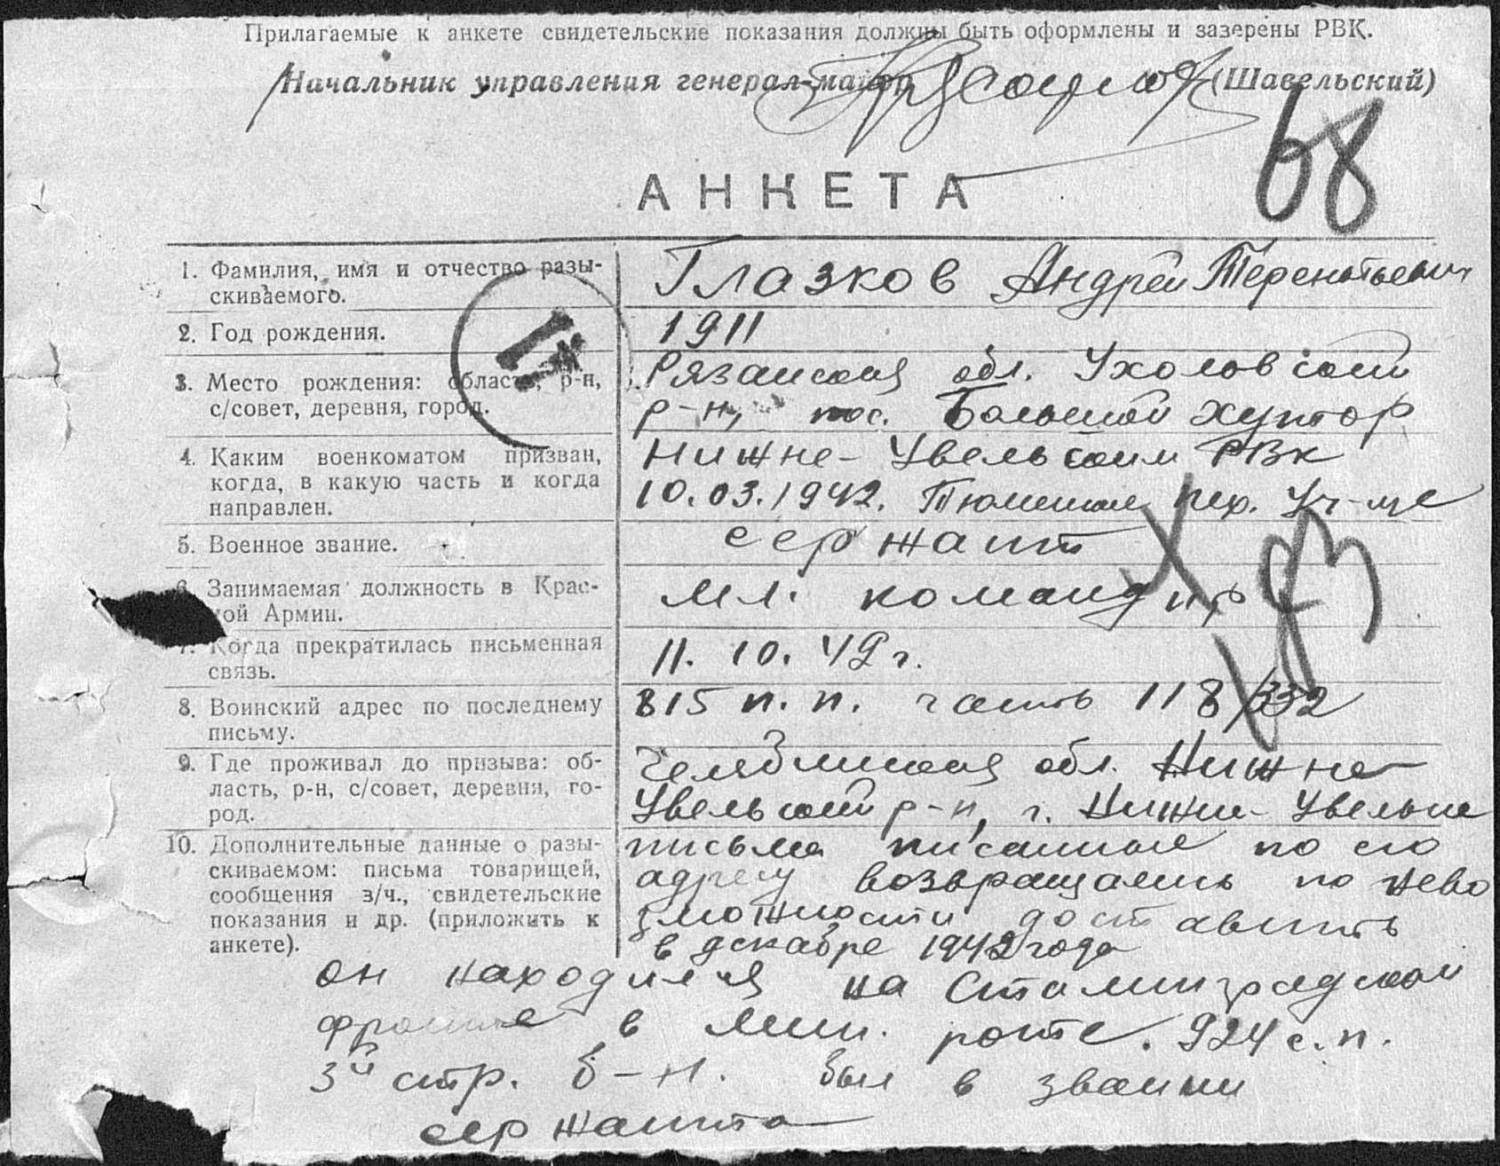 Прилагаемые к анкете свидетельские показания должны быть оформлены и заверены РВК.
Начальник управления генерал-майор (Шавельский)
68
АНКЕТА
1. Фамилия, имя и отчество разы-
скиваемого.
Глазков Андрей Терентьевич
2. Год рождения.
1911
3. Место рождения: область, р-н,
с/совет, деревня, город.
Рязанская обл. Ухоловский
р-н, пос. Большой хутор
4. Каким военкоматом призван,
когда, в какую часть и когда
направлен.
Нижне-Увельским РВК
10.03.1942. Тюменское пех. Уч-ще
5. Военное звание.
сержант
6. Занимаемая должность в Крас-
ной Армии.
мл. командир
7. Когда прекратилась письменная
связь.
11. 10. 42 г.
8. Воинский адрес по последнему
письму.
815 п. п. часть 118/332
9. Где проживал до призыва: об-
ласть, р-н, с/совет, деревня, го-
род.
Челябинская обл. Нижне-
Увельский р-н, г. Нижне-Увельск
10. Дополнительные данные о разы-
скиваемом: письма товарищей,
сообщения з/ч., свидетельские
показания и др. (приложить к
анкете).
письма писанные по его
адресу возвращались по нево
зможности доставить
в декабре 1942 года
он находился на Сталинградском
фронте в мин. роте. 924 с. п.
3й стр. б-н. был в звании
сержанта